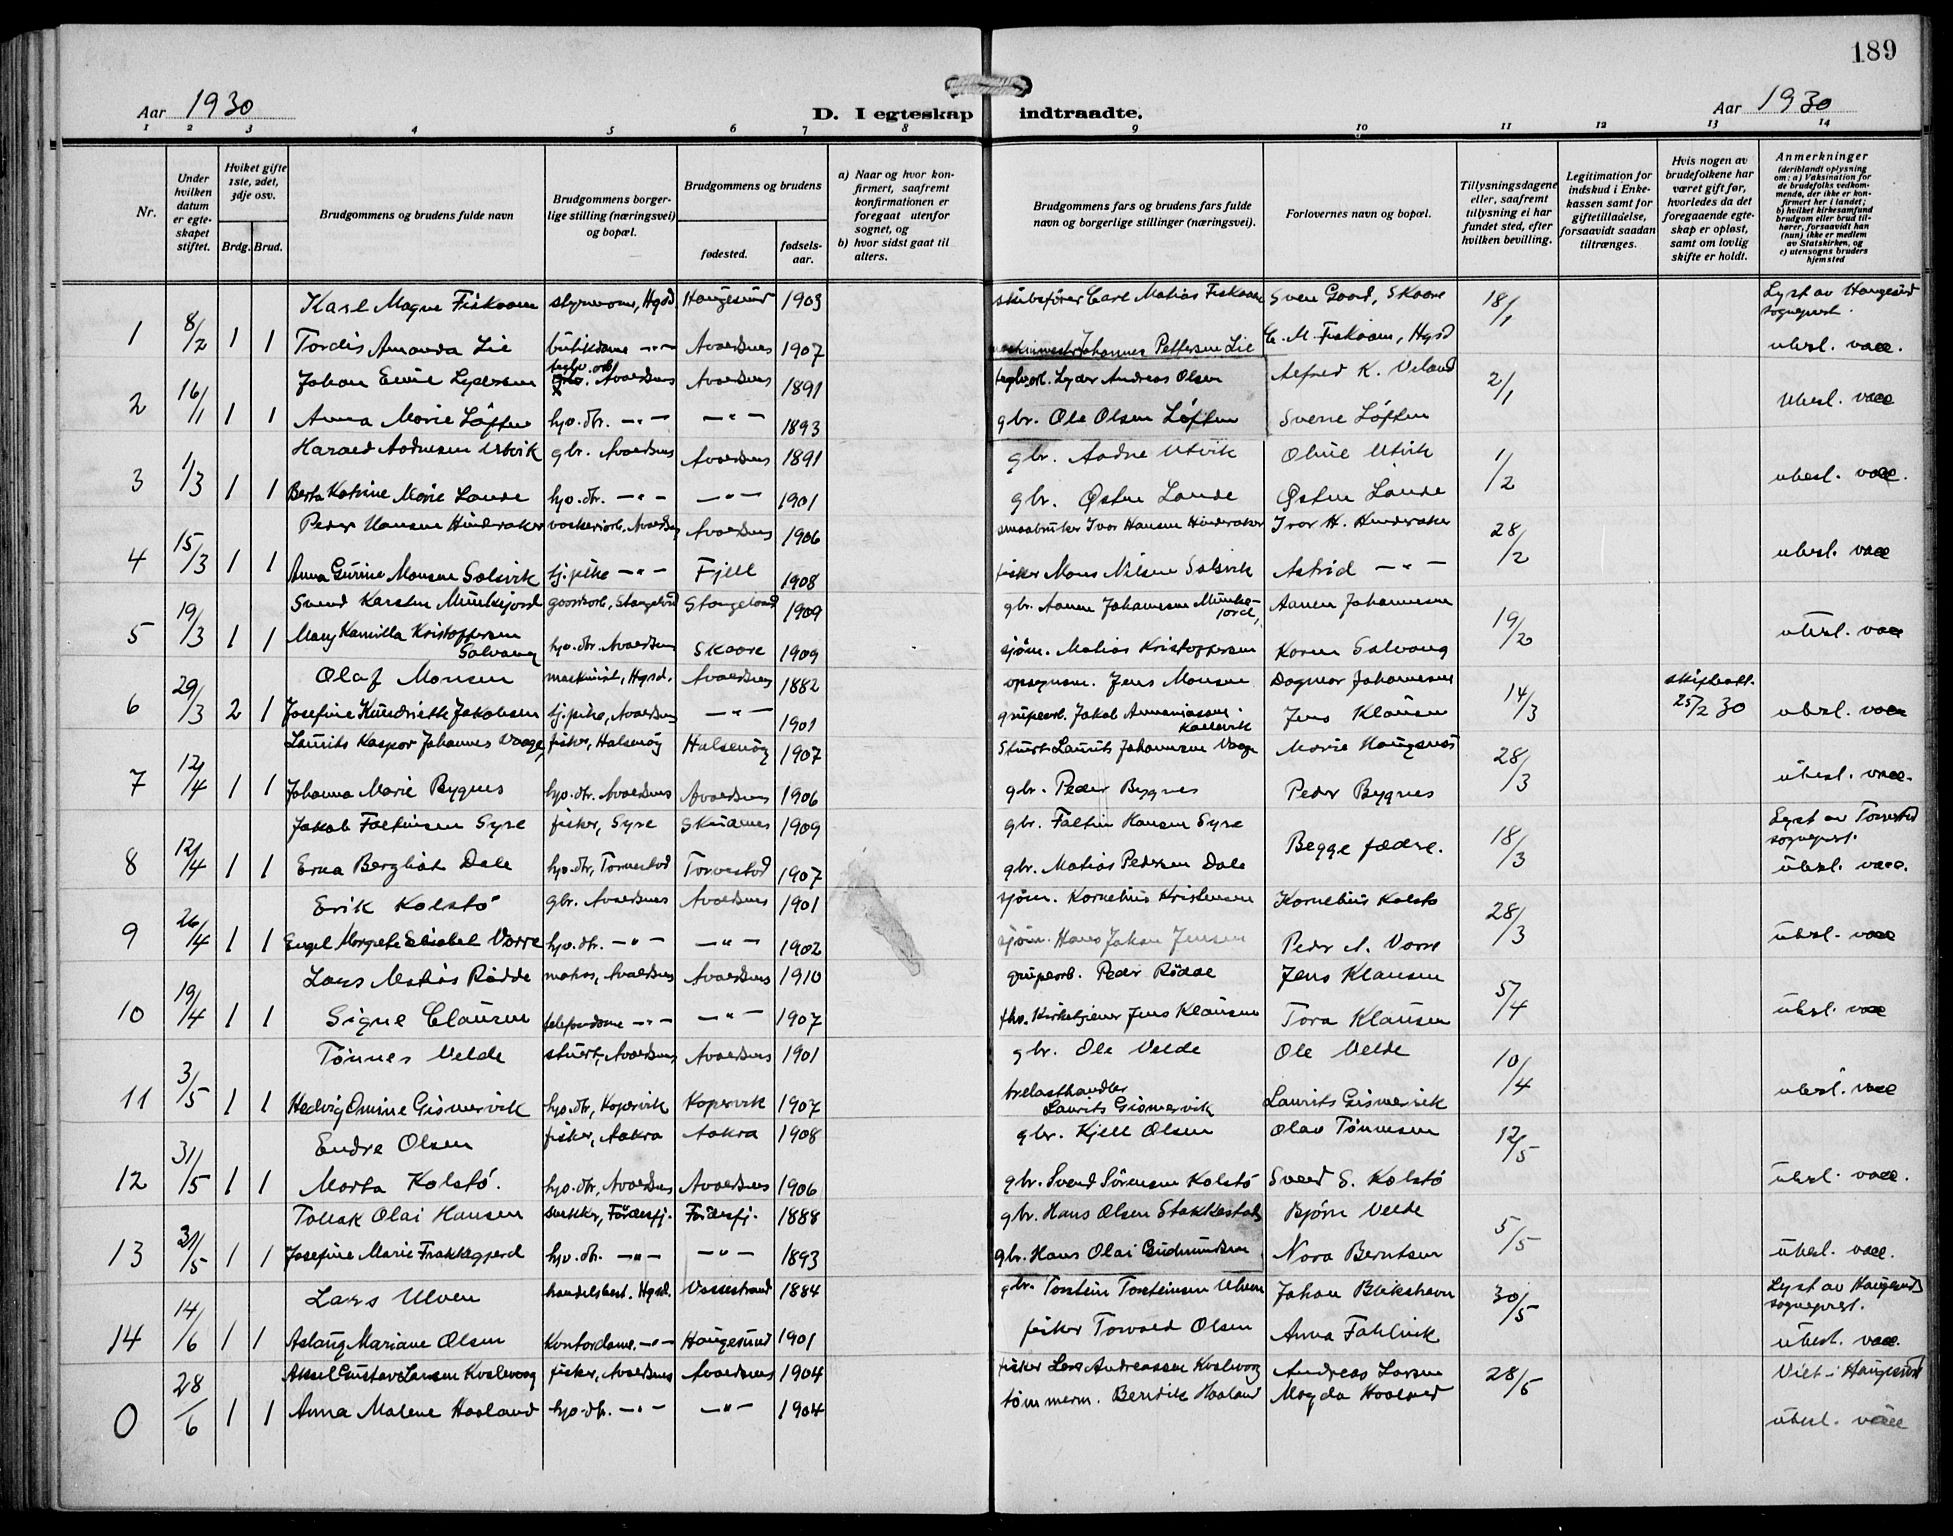 189
Aar 1930
D. I egteskap indtraadte.
Aar 1930
1 2 3 4 5 6 7 8 9 10 11 12 13 14
Nr.
Under hvilken datum er egteskapet stiftet.
Hviket gifte 1ste, 2det, 3dje osv.
Brdg. Brud.
Brudgommens og brudens fulde navn
Brudgommens borgerlige stilling (næringsvei) og bopæl.
Brudgommens og brudens
fødested.
fødselsaar.
a) Naar og hvor konfirmert, saafremt konfirmationen er foregaat utenfor sognet, og
b) hvor sidst gaat til alters.
Brudgommens fars og brudens fars fulde navn og borgerlige stillinger (næringsvei).
Forlovernes navn og bopæl.
Tillysningsdagene eller, saafremt tillysning ei har fundet sted, efter hvilken bevilling.
Legitimation for indskud i Enkekassen samt for giftetilladelse, forsaavidt saadan tiltrænges.
Hvis nogen av brudefolkene har været gift før, hvorledes da det foregaaende egteskap er opløst, samt om lovlig skifte er holdt.
Anmerkninger
(deriblandt oplysning om: a) Vaksination for de brudefolks vedkommende, der ikke er konfirmert her i landet; b) hvilket kirkesamfund brudgom eller brud tilhører, forsaavidt han (hun) ikke er medlem av Statskirken, og c) utensogns bruders hjemsted
Karl Magne Fiskaaen styrmann, Hgsd. Haugesund 1903 skibsfører Carl Matias Fiskaaen Sven Goard, Skaare 18/1 Lyst av Haugesund sogneprest.
1 8/2 1 1 Tordis Amanda Lie butikdame -"- Avaldsnes 1907 Johannes Pettersen Lie C. M. Fiskaaen, Hgsd ubesl. vacc.
Johan Emil Lydersen Avaldsnes Avaldsnes 1891 teglv.arb. Lyder Andreas Olsen Alfred K. Veland 2/1
2 16/1 1 1 Anna Marie Løften hjv. dtr. -"- -"- 1893 gbr. Ole Olsen Løften Sverre Løften ubesl. vacc
Harald Aadnesen Utvik gbr. Avaldsnes Avaldsnes 1891 gbr. Aadne Utvik Oline Utvik 1/2
3 1/3 1 1 Berta Katrine Marie Lande hjv. dtr. -"- -"- 1901 gbr. Østen Lande Østen Lande ubesl. vacc.
Peder Hansen Hinderaker Avaldsnes Avaldsnes 1906 smaabruker Ivar Hansen Hinderaker Ivar H. Hinderaker 28/2
4 15/3 1 1 Anna Gurine Monsen Solsvik tj.pike -"- Fjell 1908 fisker Mons Nilsen Solsvik Astrid -"- ubesl. vacc
Svend Karsten Munkejord gaardsarb., Stangeland Stangeland 1909 gbr. Aanen Johannesen Munkejord, Aanen Johannesen 19/2
5 19/3 1 1 Mary Kamilla Kristoffersen Salvang hjv. dtr. Avaldsnes Skaare 1909 sjøm. Matias Kristoffersen Karen Salvang ubesl. vacc
Olaf Monsen maskinist, Hgsd. Avaldsnes 1882 opsynsm. Jens Monsen Dagmar Johannesen 14/3 skifteatt. 25/2 30
6 29/3 2 1 Josefine Hendriette Jakobsen tj.pike, Avaldsnes -"- 1901 grubearb. Jakob Ammaniassen Kallevik Jens Klausen ubesl. vacc
Laurits Kaspar Johannes Vaage, fisker, Halsenøy Halsenøy 1907 Stuert Laurits Johannesen Vaage Marie Haugsnes 28/3
7 12/4 1 1 Johanna Marie Bygnes hjv. dtr. Avaldsnes Avaldsnes 1906 gbr. Peder Bygnes Peder Bygnes ubesl. vacc.
Jakob Faltinsen Syre fisker, Syre Skudenes 1909 gbr. Faltin Hansen Syre Begge fædre. 18/3 Lyst av Torvestad sogneprest.
8 12/4 1 1 Erna Bergliot Dale hjv. dtr, Torvestad Torvestad 1907 gbr. Matias Pedersen Dale ubesl. vacc.
Erik Kolstø gbr. Avaldsnes Avaldsnes 1901 sjøm. Kornelius Kristensen Kornelius Kolstø 28/3
9 26/4 1 1 Engel Margrete Elisabet Vorre hjv. dtr. -"- -"- 1902 sjøm. Hans Johan Jensen Peder A. Vorre ubesl. vacc
Lars Matias Rødde Avaldsnes Avaldsnes 1910 grubearb. Peder Rødde Jens Klausen 5/4
10 19/4 1 1 Signe Clausen telefondame -"- -"- 1907 fhv. Kirketjener Jens Klausen Tora Klausen ubesl. vacc
Tønnes Velde stuert, Avaldsnes Avaldsnes 1901 gbr. Ole Velde Ole Velde 10/4
11 3/5 1 1 Hedvig Omine Gismervik hjv. dtr, Kopervik Kopervik 1907 trelasthandler Laurits Gismervik Laurits Gismervik ubesl. vacc
Endre Olsen fisker, Aakra Aakra 1908 gbr. Kjell Olsen Olav Tønnesen 12/5
12 31/5 1 1 Marta Kolstø. hjv. dtr, Avaldsnes Avaldsnes 1906 gbr. Svend Sørensen Kolstø Svend S. Kolstø ubesl. vacc.
Tollak Olai Hansen snekker, Førdesfj. Førdesfj. 1888 gbr. Hans Olsen Stakkestad Bjørn Velde 5/5
13 31/5 1 1 Josefine Marie Frakkagjerd hjv. dtr. -"- -"- 1893 gbr. Hans Olai Gudmundsen Nora Berntsen ubesl. vacc.
Lars Ulven handelsbest. Hgsd. Vossestrand 1884 gbr. Torstein Torsteinsen Ulven Johan Blikshavn 30/5 Lyst av Haugesund sogneprest.
14 14/6 1 1 Aslaug Mariane Olsen Kontordame. -"- Haugesund 1901 fisker Torvald Olsen Anna Fahlvik ubesl. vacc.
Aksel Gustav Larsen Kvalevaag fisker, Avaldsnes Avaldsnes 1904 fisker Lars Andreassen Kvalevaag Andreas Larsen 28/5 Viet i Haugesund
0 28/6 1 1 Anna Malene Haaland hjv. dtr. -"- -"- 1904 tømmerm. Bendik Haaland Magda Haaland ubesl. vacc